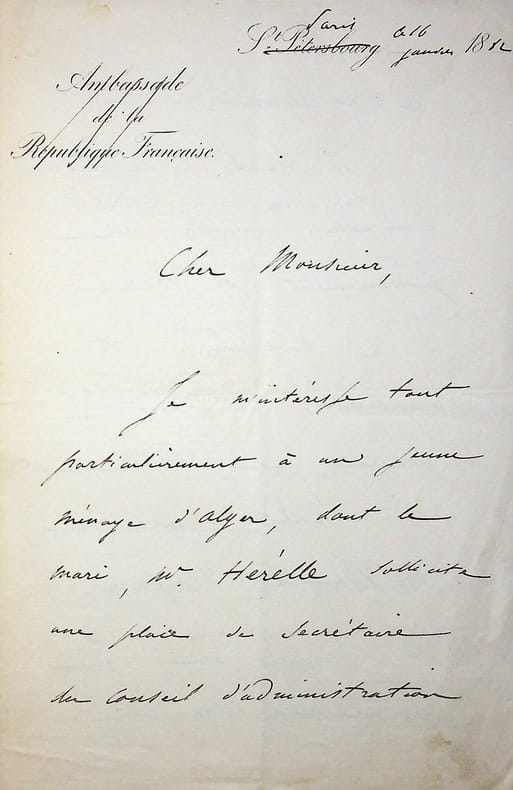 Paris
St Pétersbourg le 16 janvier 1882
Ambassade
de la
République Française.
Cher Monsieur,
Je m'intéresse tout
particulièrement à un jeune
ménage d'Alger, dont le
mari, Mr. Hérelle sollicite
une place de secrétaire
du Conseil d'administration